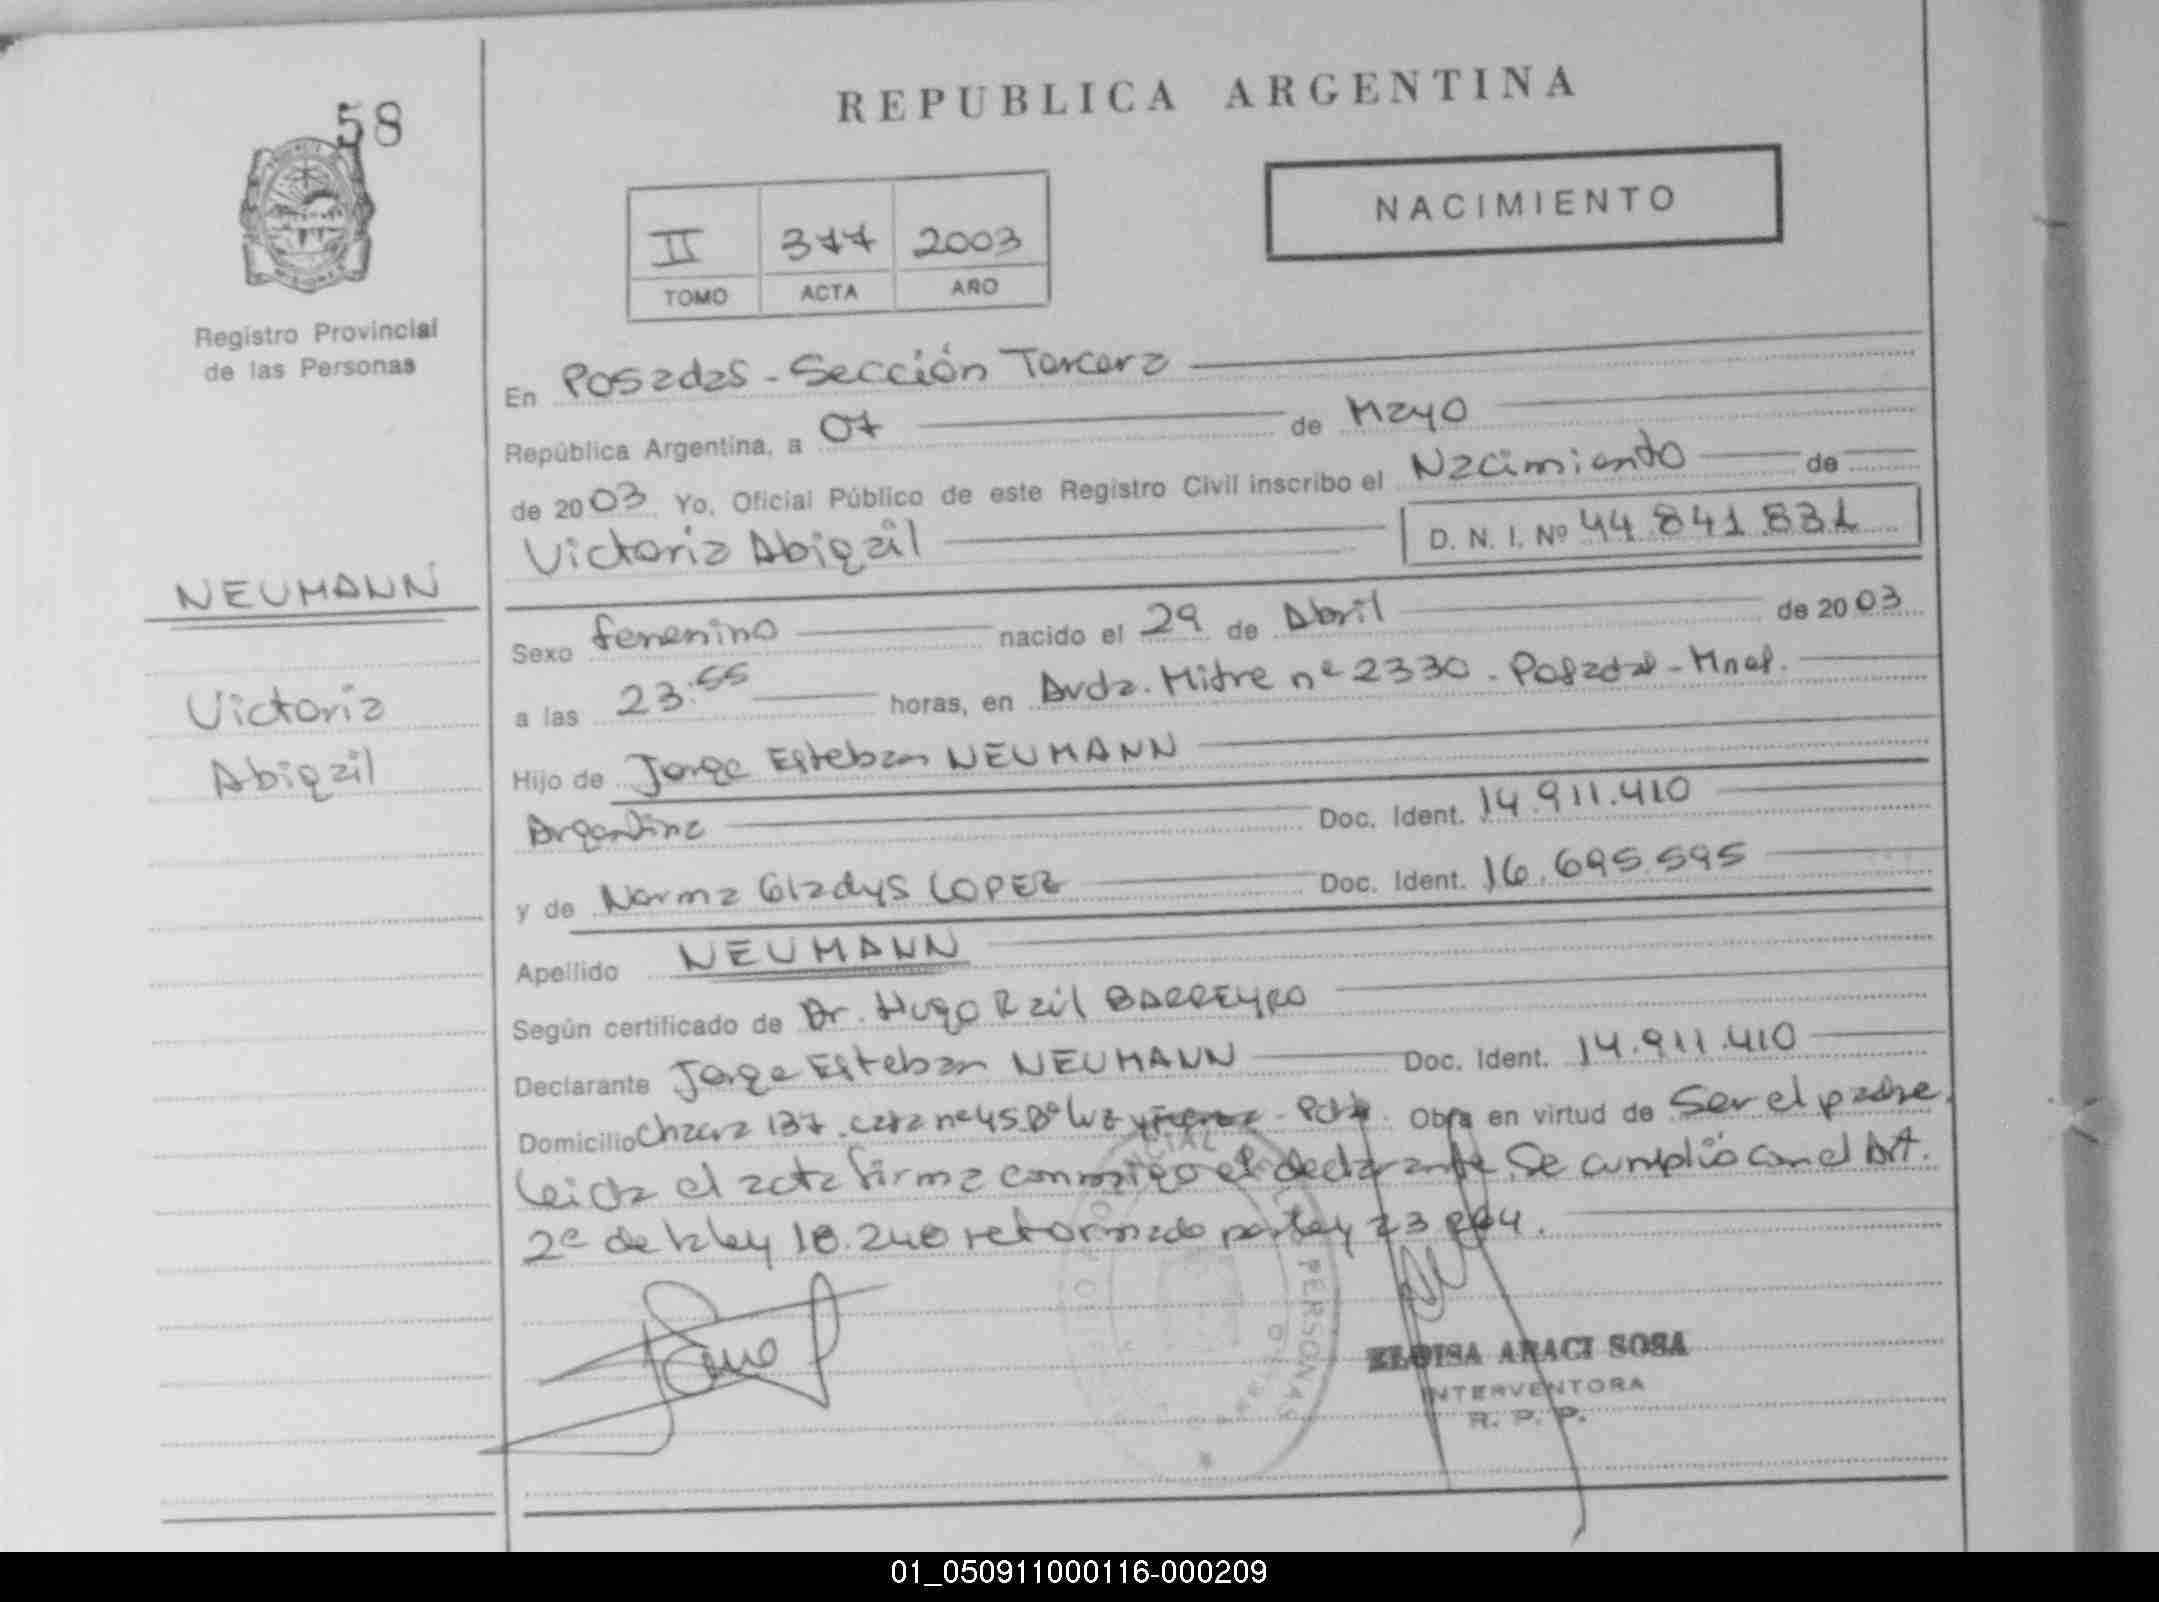 58
REPUBLICA ARGENTINA
NACIMIENTO
II 377 2003
TOMO ACTA AÑO
Registro Provincial
de las Personas
En Posadas - Sección Tercera
República Argentina, a 07 de Mayo
de 2003 Yo, Oficial Público de este Registro Civil inscribo el Nacimiento de
Victoria Abigail D. N. I. Nº 44.841.831
NEUMANN
Victoria
Abigail
Sexo femenino nacido el 29 de Abril de 2003
a las 23:55 horas, en Avda. Mitre nº 2330 - Posadas - Mnes.
Hijo de Jorge Esteban NEUMANN
Argentina Doc. Ident. 14.911.410
y de Norma Gladys LOPEZ Doc. Ident. 16.695.595
Apellido NEUMANN
Según certificado de Dr. Hugo Raúl BARREYRO
Declarante Jorge Esteban NEUMANN Doc. Ident. 14.911.410
Domicilio Chacra 137 casa nº 45 Bº Luz y Fuerza - Pdas. Obra en virtud de Ser el padre.
Leida el acta firma conmigo el declarante. Se cumplió con el Art.
2º de la ley 18.248 reformado por ley
PROVINCIAL PERSONAS
ELOISA ARACI SOSA
INTERVENTORA
R. P. P.
01_050911000116-000209